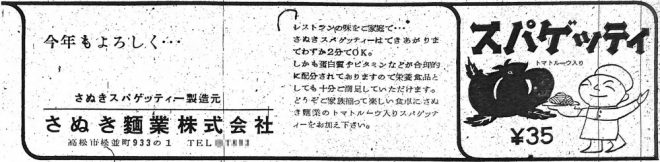 今年もよろしく…
さぬきスパゲッティー製造元
さぬき麺業株式会社
高松市松並町933の1 TEL
レストランの味をご家庭で…
さぬきスパゲッティーはできあがりま
でわずか2分でOK。
しかも蛋白質やビタミンなどが合理的
に配分されておりますので栄養食品と
しても十分ご満足していただけます。
どうぞご家族揃って楽しい食卓にさぬ
き麺業のトマトルーウ入りスパゲッテ
ィーをお加え下さい。
スパゲッティ
トマトルーウ入り
¥35